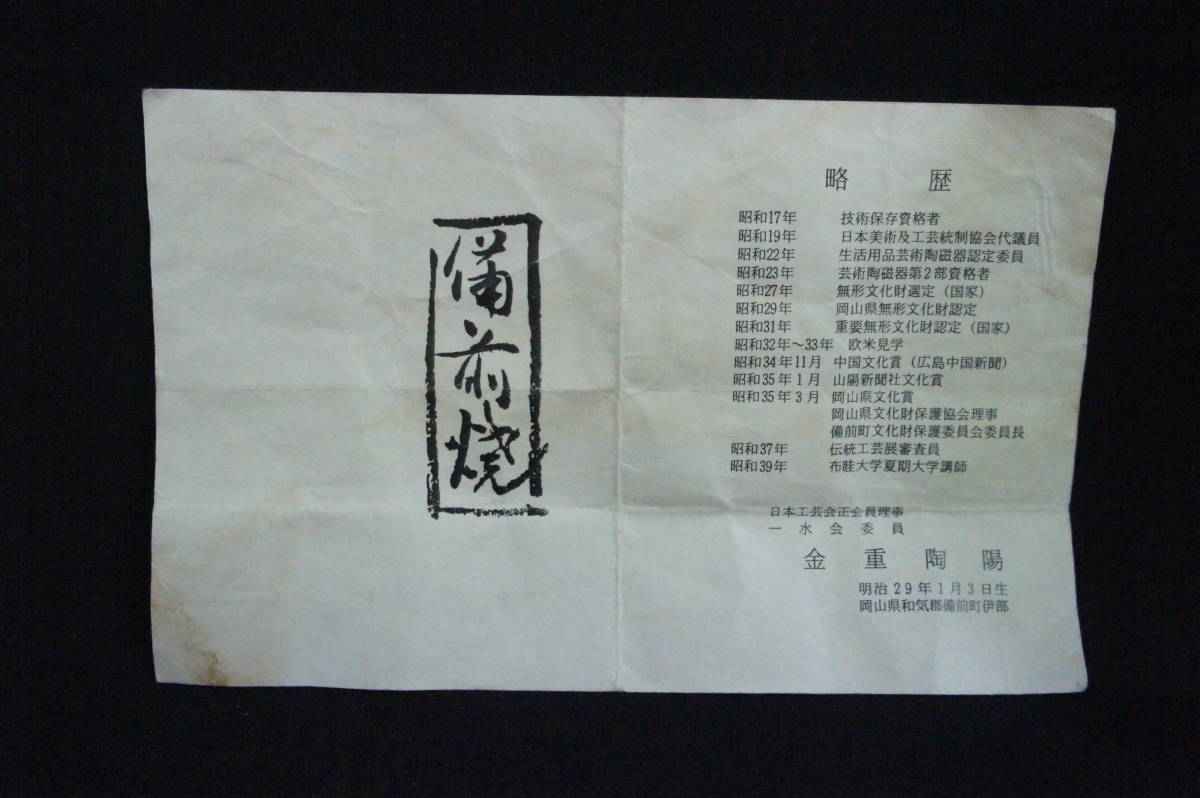 備前焼
略歴
昭和17年 技術保存資格者
昭和19年 日本美術及工芸統制協会代議員
昭和22年 生活用品芸術陶磁器認定委員
昭和23年 芸術陶磁器第2部資格者
昭和27年 無形文化財選定(国家)
昭和29年 岡山県無形文化財認定
昭和31年 重要無形文化財認定(国家)
昭和32年〜33年 欧米見学
昭和34年11月 中国文化賞(広島中国新聞)
昭和35年1月 山陽新聞社文化賞
昭和35年3月 岡山県文化賞
岡山県文化財保護協会理事
備前町文化財保護委員会委員長
昭和37年 伝統工芸展審査員
昭和39年 布哇大学夏期大学講師
日本工芸会正会員理事
一水会委員
金重陶陽
明治29年1月3日生
岡山県和気郡備前町伊部